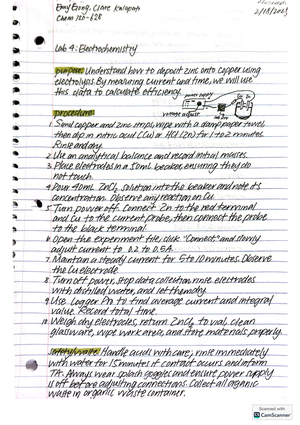 Chem 125-628
2/18/2025
Lab 4: Electrochemistry
purpose: Understand how to deposit zinc onto copper using
electrolysis. By measuring current and time, we will use
this data to calculate efficiency.
power supply
voltage adjust
procedure:
1. Sand copper and zinc strips, wipe with a damp paper towel,
then dip in nitric acid (Cu) or HCl (Zn) for 1 to 2 minutes.
Rinse and dry.
2. Use an analytical balance and record initial masses.
3. Place electrodes in a 50mL beaker, ensuring they do
not touch.
4. Pour 40mL ZnCl₂ solution into the beaker and note its
concentration. Observe any reaction on Cu.
5. Turn power off. Connect Zn to the red terminal
and Cu to the current probe, then connect the probe
to the black terminal.
6. Open the experiment file, click "Connect" and slowly
adjust current to 0.2 to 0.5A.
7. Maintain a steady current for 5 to 10 minutes. Observe
the Cu electrode.
8. Turn off power, stop data collection, rinse electrodes
with distilled water, and let them dry.
9. Use Logger Pro to find average current and integral
value. Record total time.
10. Weigh dry electrodes, return ZnCl₂ to vial, clean
glassware, wipe work area, and store materials properly.
safety/waste: Handle acids with care; rinse immediately
with water for 15 minutes if contact occurs and inform
TA. Always wear splash goggles and ensure power supply
is off before adjusting connections. Collect all organic
waste in organic waste container.
Scanned with
CamScanner